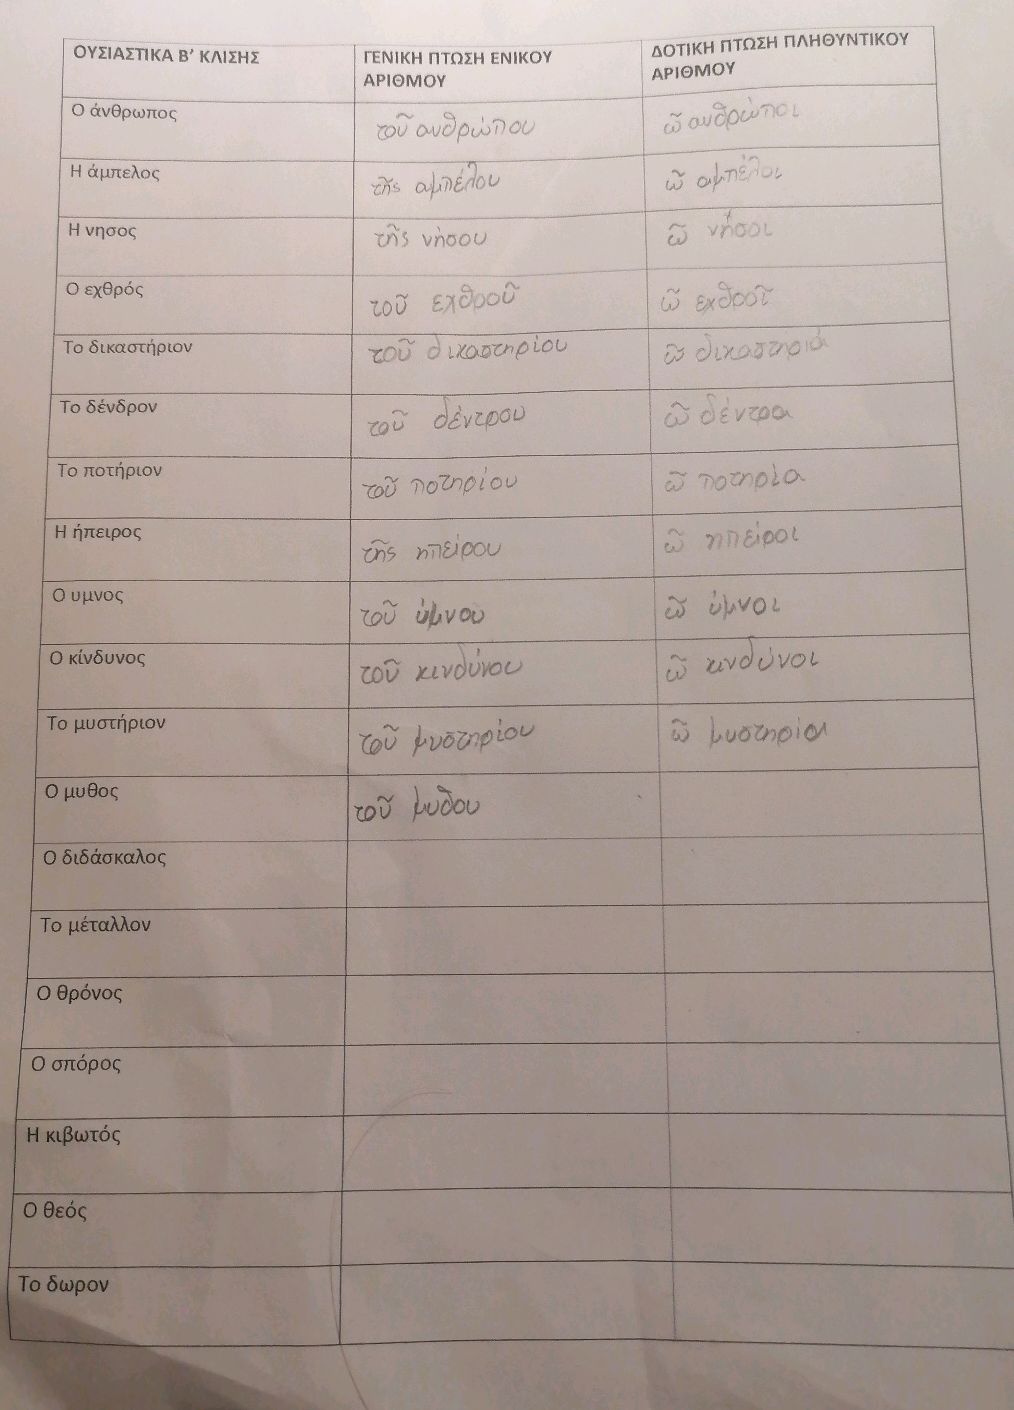 ΟΥΣΙΑΣΤΙΚΑ Β' ΚΛΙΣΗΣ ΓΕΝΙΚΗ ΠΤΩΣΗ ΕΝΙΚΟΥ ΑΡΙΘΜΟΥ ΔΟΤΙΚΗ ΠΤΩΣΗ ΠΛΗΘΥΝΤΙΚΟΥ ΑΡΙΘΜΟΥ
Ο άνθρωπος τοῦ ανθρώπου ὦ ανθρώποι
Η άμπελος τῆς αμπέλου ὦ αμπέλοι
Η νησος τῆς νήσου ὦ νήσοι
Ο εχθρός τοῦ εχθροῦ ὦ εχθροῖ
Το δικαστήριον τοῦ δικαστηρίου ὦ δικαστηριά
Το δένδρον τοῦ δέντρου ὦ δέντρα
Το ποτήριον τοῦ ποτηρίου ὦ ποτηρία
Η ήπειρος τῆς ηπείρου ὦ ηπείροι
Ο υμνος τοῦ ύμνου ὦ ύμνοι
Ο κίνδυνος τοῦ κινδύνου ὦ κινδύνοι
Το μυστήριον τοῦ μυστηρίου ὦ μυστηρία
Ο μυθος τοῦ μυθου
Ο διδάσκαλος
Το μέταλλον
Ο θρόνος
Ο σπόρος
Η κιβωτός
Ο θεός
Το δωρον